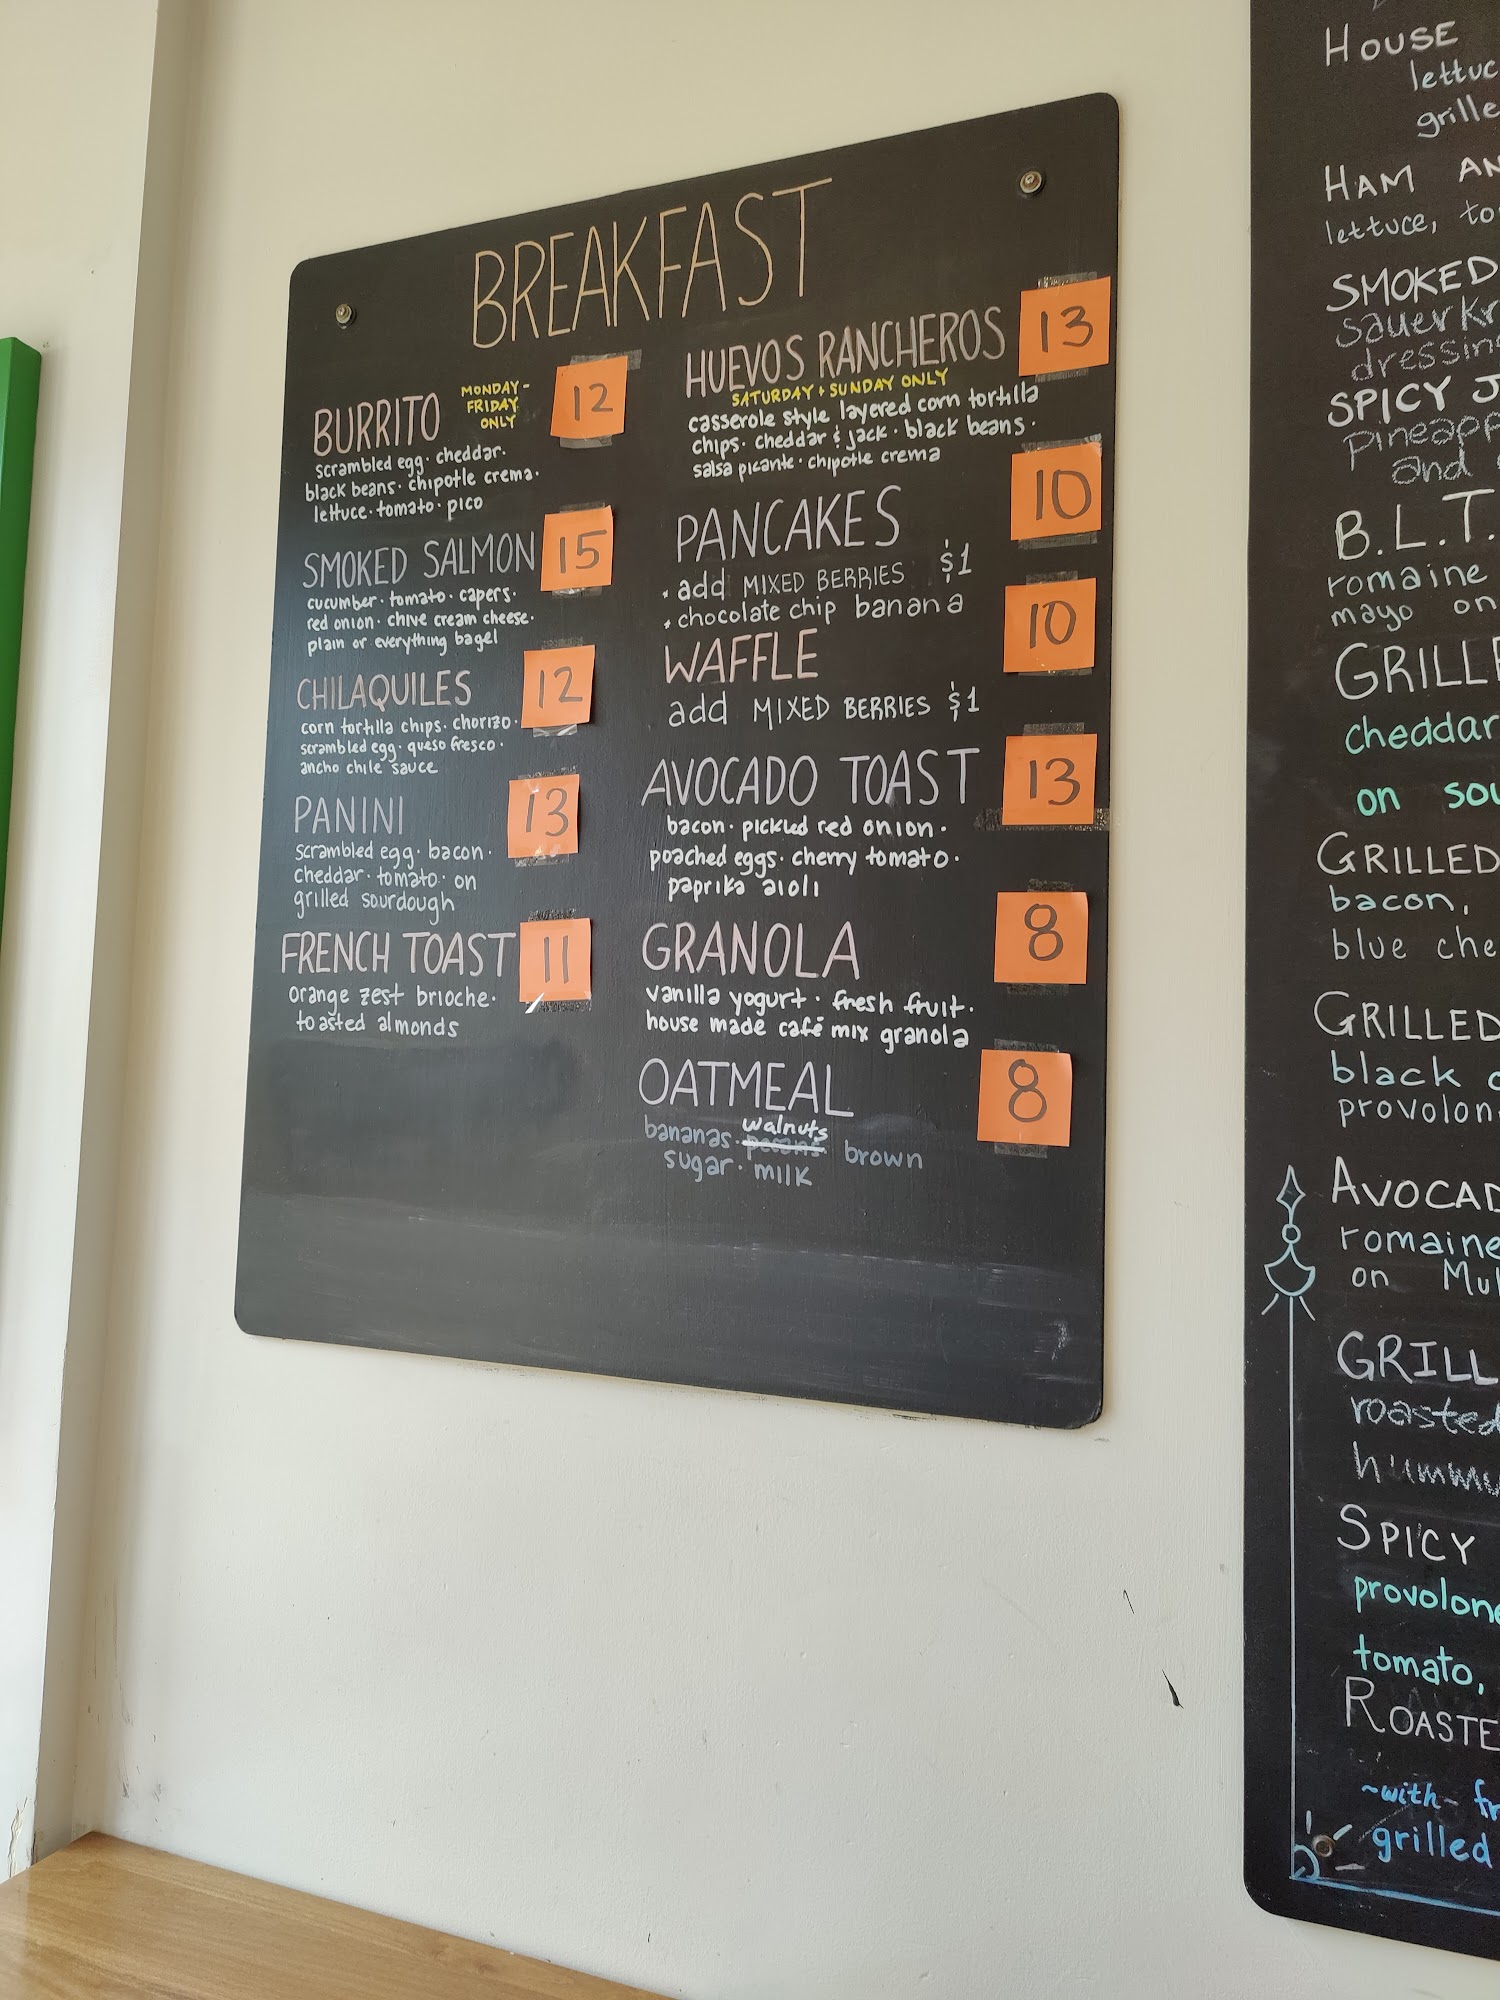 BREAKFAST
BURRITO
MONDAY-
FRIDAY
ONLY
12
scrambled egg · cheddar ·
black beans · chipotle crema ·
lettuce · tomato · pico
SMOKED SALMON 15
cucumber · tomato · capers ·
red onion · chive cream cheese ·
plain or everything bagel
CHILAQUILES 12
corn tortilla chips · chorizo ·
scrambled egg · queso fresco ·
ancho chile sauce
PANINI 13
scrambled egg · bacon ·
cheddar · tomato · on
grilled sourdough
FRENCH TOAST 11
orange zest brioche ·
toasted almonds
HUEVOS RANCHEROS 13
SATURDAY + SUNDAY ONLY
casserole style layered corn tortilla
chips · cheddar & jack · black beans ·
salsa picante · chipotle crema
PANCAKES 10
· add MIXED BERRIES $1
· chocolate chip banana
WAFFLE 10
add MIXED BERRIES $1
AVOCADO TOAST 13
bacon · pickled red onion ·
poached eggs · cherry tomato ·
paprika aioli
GRANOLA 8
vanilla yogurt · fresh fruit ·
house made café mix granola
OATMEAL 8
walnuts
bananas · pecans brown
sugar · milk
HOUSE
lettuc
grille
HAM AN
lettuce, to
SMOKED
sauerkr
dressin
SPICY J
pineapp
and
B.L.T.
romaine
mayo on
GRILLE
cheddar
on sou
GRILLED
bacon,
blue che
GRILLED
black o
provolon
AVOCAD
romaine
on Mul
GRILL
roasted
hummu
SPICY
provolone
tomato,
ROASTE
~with~ fr
grilled